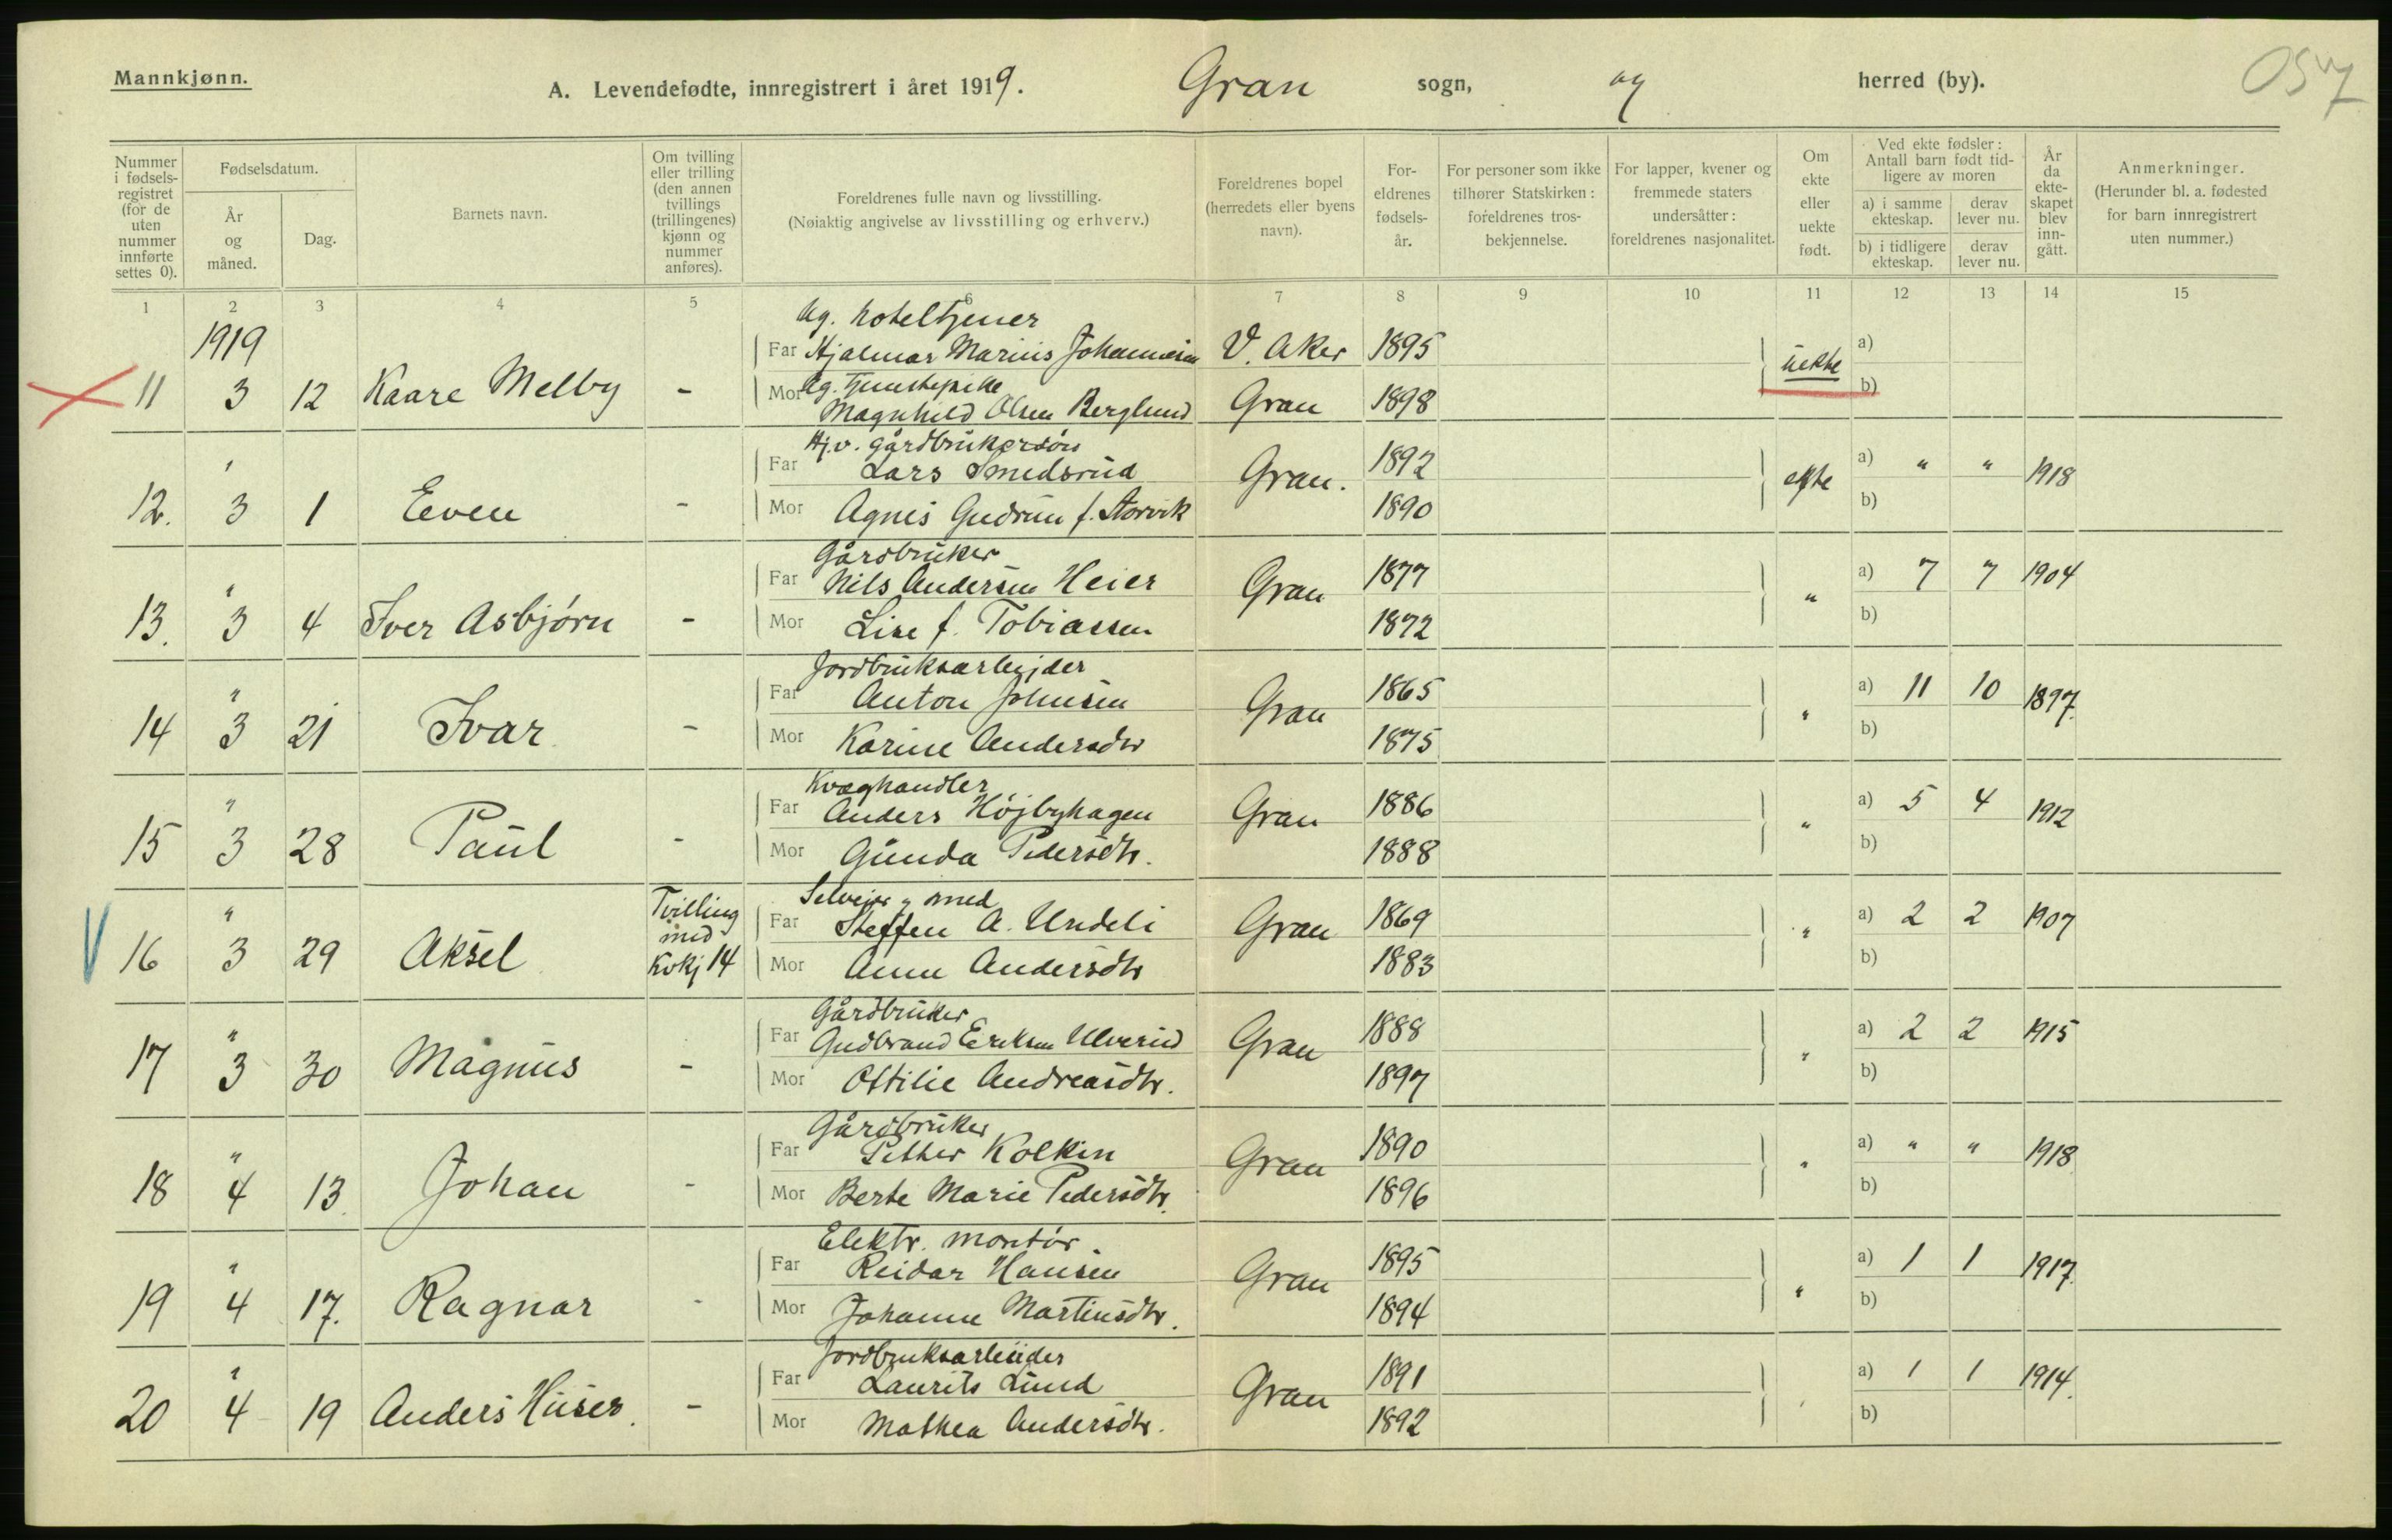 Mannkjønn.
A. Levendefødte, innregistrert i året 1919. Gran sogn, og herred (by).
Nummer i fødsels-registret (for de uten nummer innførte settes 0).
Fødselsdatum.
År og måned.
Dag.
Barnets navn.
Om tvilling eller trilling (den annen tvillings (trillingenes) kjønn og nummer anføres).
Foreldrenes fulle navn og livsstilling.
(Nøiaktig angivelse av livsstilling og erhverv.)
Foreldrenes bopel (herredets eller byens navn).
For-eldrenes fødsels-år.
For personer som ikke tilhører Statskirken: foreldrenes tros-bekjennelse.
For lapper, kvener og fremmede staters undersåtter: foreldrenes nasjonalitet.
Om ekte eller uekte født.
Ved ekte fødsler: Antall barn født tid-ligere av moren
a) i samme ekteskap.
derav lever nu.
b) i tidligere ekteskap.
derav lever nu.
År da ekte-skapet blev inn-gått.
Anmerkninger.
(Herunder bl. a. fødested for barn innregistrert uten nummer.)
1 2 3 4 5 6 7 8 9 10 11 12 13 14 15
1919
Ug. hoteltjener
Far Hjalmar Marius Johannesen V. Aker 1895 a)
11 3 12 Kaare Melby - uekte
Ug. tjenestepike
Mor Magnhild Olsen Berglund Gran 1898 b)
Hj.v. gårdbrukersøn
Far Lars Smedsrud Gran. 1892 ekte a) " " 1918
12. 3 1 Even -
Mor Agnes Gudrun f. Storvik 1890 b)
Gårdbruker
Far Nils Andersen Heier Gran 1877 " a) 7 7 1904
13. " 3 4 Iver Asbjørn -
Mor Lise f. Tobiassen 1872 b)
Jordbruksarbejder
Far Anton Johnsen Gran 1865 " a) 11 10 1897
14 " 3 21 Ivar -
Mor Karine Andersdtr 1875 b)
Kvæghandler
Far Anders Højbyhagen Gran 1886 " a) 5 4 1912
15 " 3 28 Paul -
Mor Gunda Pedersdtr. 1888 b)
Selvejer, smed
Far Steffen A. Undeli Gran 1869 " a) 2 2 1907
16 " 3 29 Aksel Tvilling med Kvkj 14
Mor Anne Andersdtr 1883 b)
Gårdbruker
Far Gudbrand Eriksen Ulverud Gran 1888 " a) 2 2 1915
17 " 3 30 Magnus -
Mor Ottilie Andreasdtr. 1897 b)
Gårdbruker
Far Petter Kolkin Gran 1890 " a) " " 1918
18 " 4 13. Johan -
Mor Berte Marie Pedersdtr. 1896 b)
Elektr. montør
Far Reidar Hansen Gran 1895 " a) 1 1 1917
19 " 4 17. Ragnar -
Mor Johanne Martinsdtr. 1894 b)
Jordbruksarbeider
Far Laurits Lund Gran 1891 a) 1 1 1914.
20 " 4 19 Anders Huser. -
Mor Mathea Andersdtr. 1892 b)